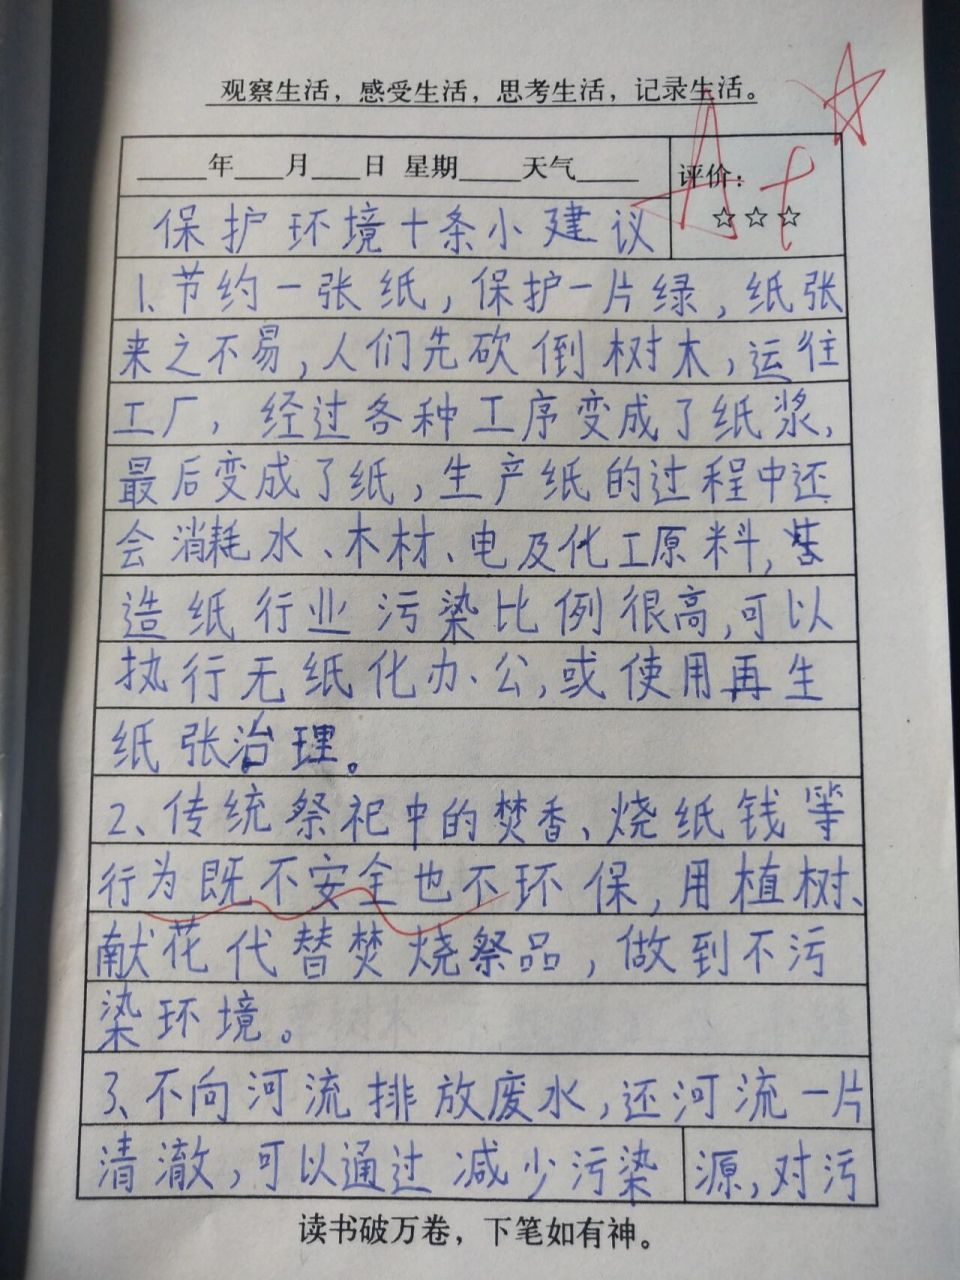 观察生活，感受生活，思考生活，记录生活。
____年___月___日 星期____天气____
评价：
A+
☆☆☆
保护环境十条小建议
1、节约一张纸，保护一片绿，纸张
来之不易，人们先砍倒树木，运往
工厂，经过各种工序变成了纸浆，
最后变成了纸，生产纸的过程中还
会消耗水、木材、电及化工原料，
造纸行业污染比例很高，可以
执行无纸化办公，或使用再生
纸张治理。
2、传统祭祀中的焚香、烧纸钱等
行为既不安全也不环保，用植树、
献花代替焚烧祭品，做到不污
染环境。
3、不向河流排放废水，还河流一片
清澈，可以通过减少污染源，对污
读书破万卷，下笔如有神。